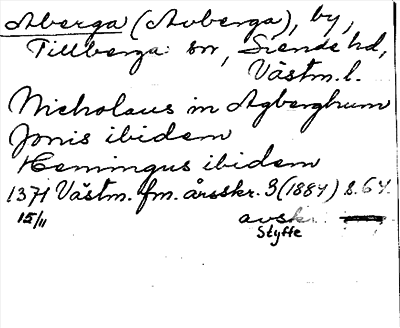 Aberga (Avberga), by,
Tillberga sn, Siende hd,
Västm. l.
Nicholaus in Agberghum
Jonis ibidem
Hemingus ibidem
1371 Västm. fm. årsskr. 3 (1884) s. 64.
15/11 avskr.
Styffe